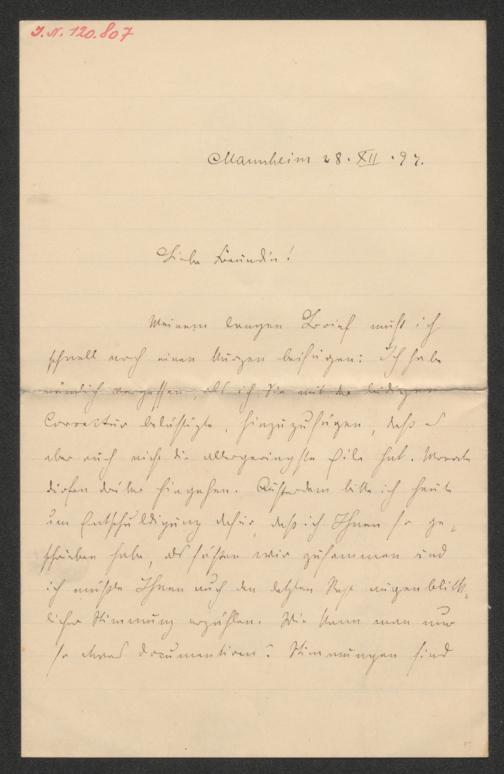 I.N. 120.807
Mannheim 28. XII. 97.
Liebe Freundin!
Meinem langen Brief muß ich
schnell noch einen kurzen beifügen: Ich habe
nämlich vergessen, als ich Sie mit der leidigen
Correctur belästigte, hinzuzufügen, daß es
aber auch nicht die allergeringste Eile hat. Monate
dürfen drüber hingehen. Außerdem bitte ich heute
um Entschuldigung dafür, daß ich Ihnen so ge-
schrieben habe, als säßen wir zusammen und
ich müßte Ihnen auch den letzten Rest augenblick-
licher Stimmung erzählen. Wie kann man nur
so etwas documentiren? Stimmungen sind